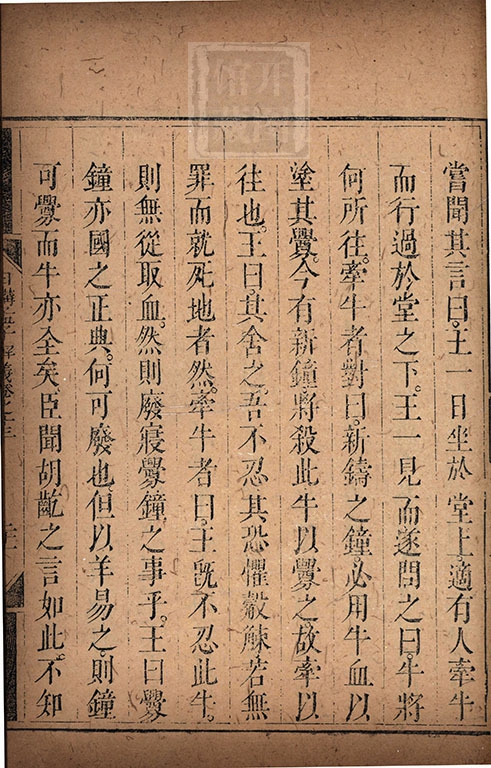 嘗聞其言曰。王一日坐於堂上。適有人牽牛
而行過於堂之下。王一見而遂問之曰。牛將
何所往。牽牛者對曰。新鑄之鐘。必用牛血以
塗其釁。今有新鐘將殺此牛以釁之。故牽以
往也。王曰。其舍之。吾不忍其恐懼觳觫若無
罪而就死地者然。牽牛者曰。王旣不忍此牛。
則無從取血。然則廢寢釁鐘之事乎。王曰釁
鐘亦國之正典。何可廢也但以羊易之。則鐘
可釁而牛亦全矣。臣聞胡齕之言如此。不知
日講
孟子
解義卷之三